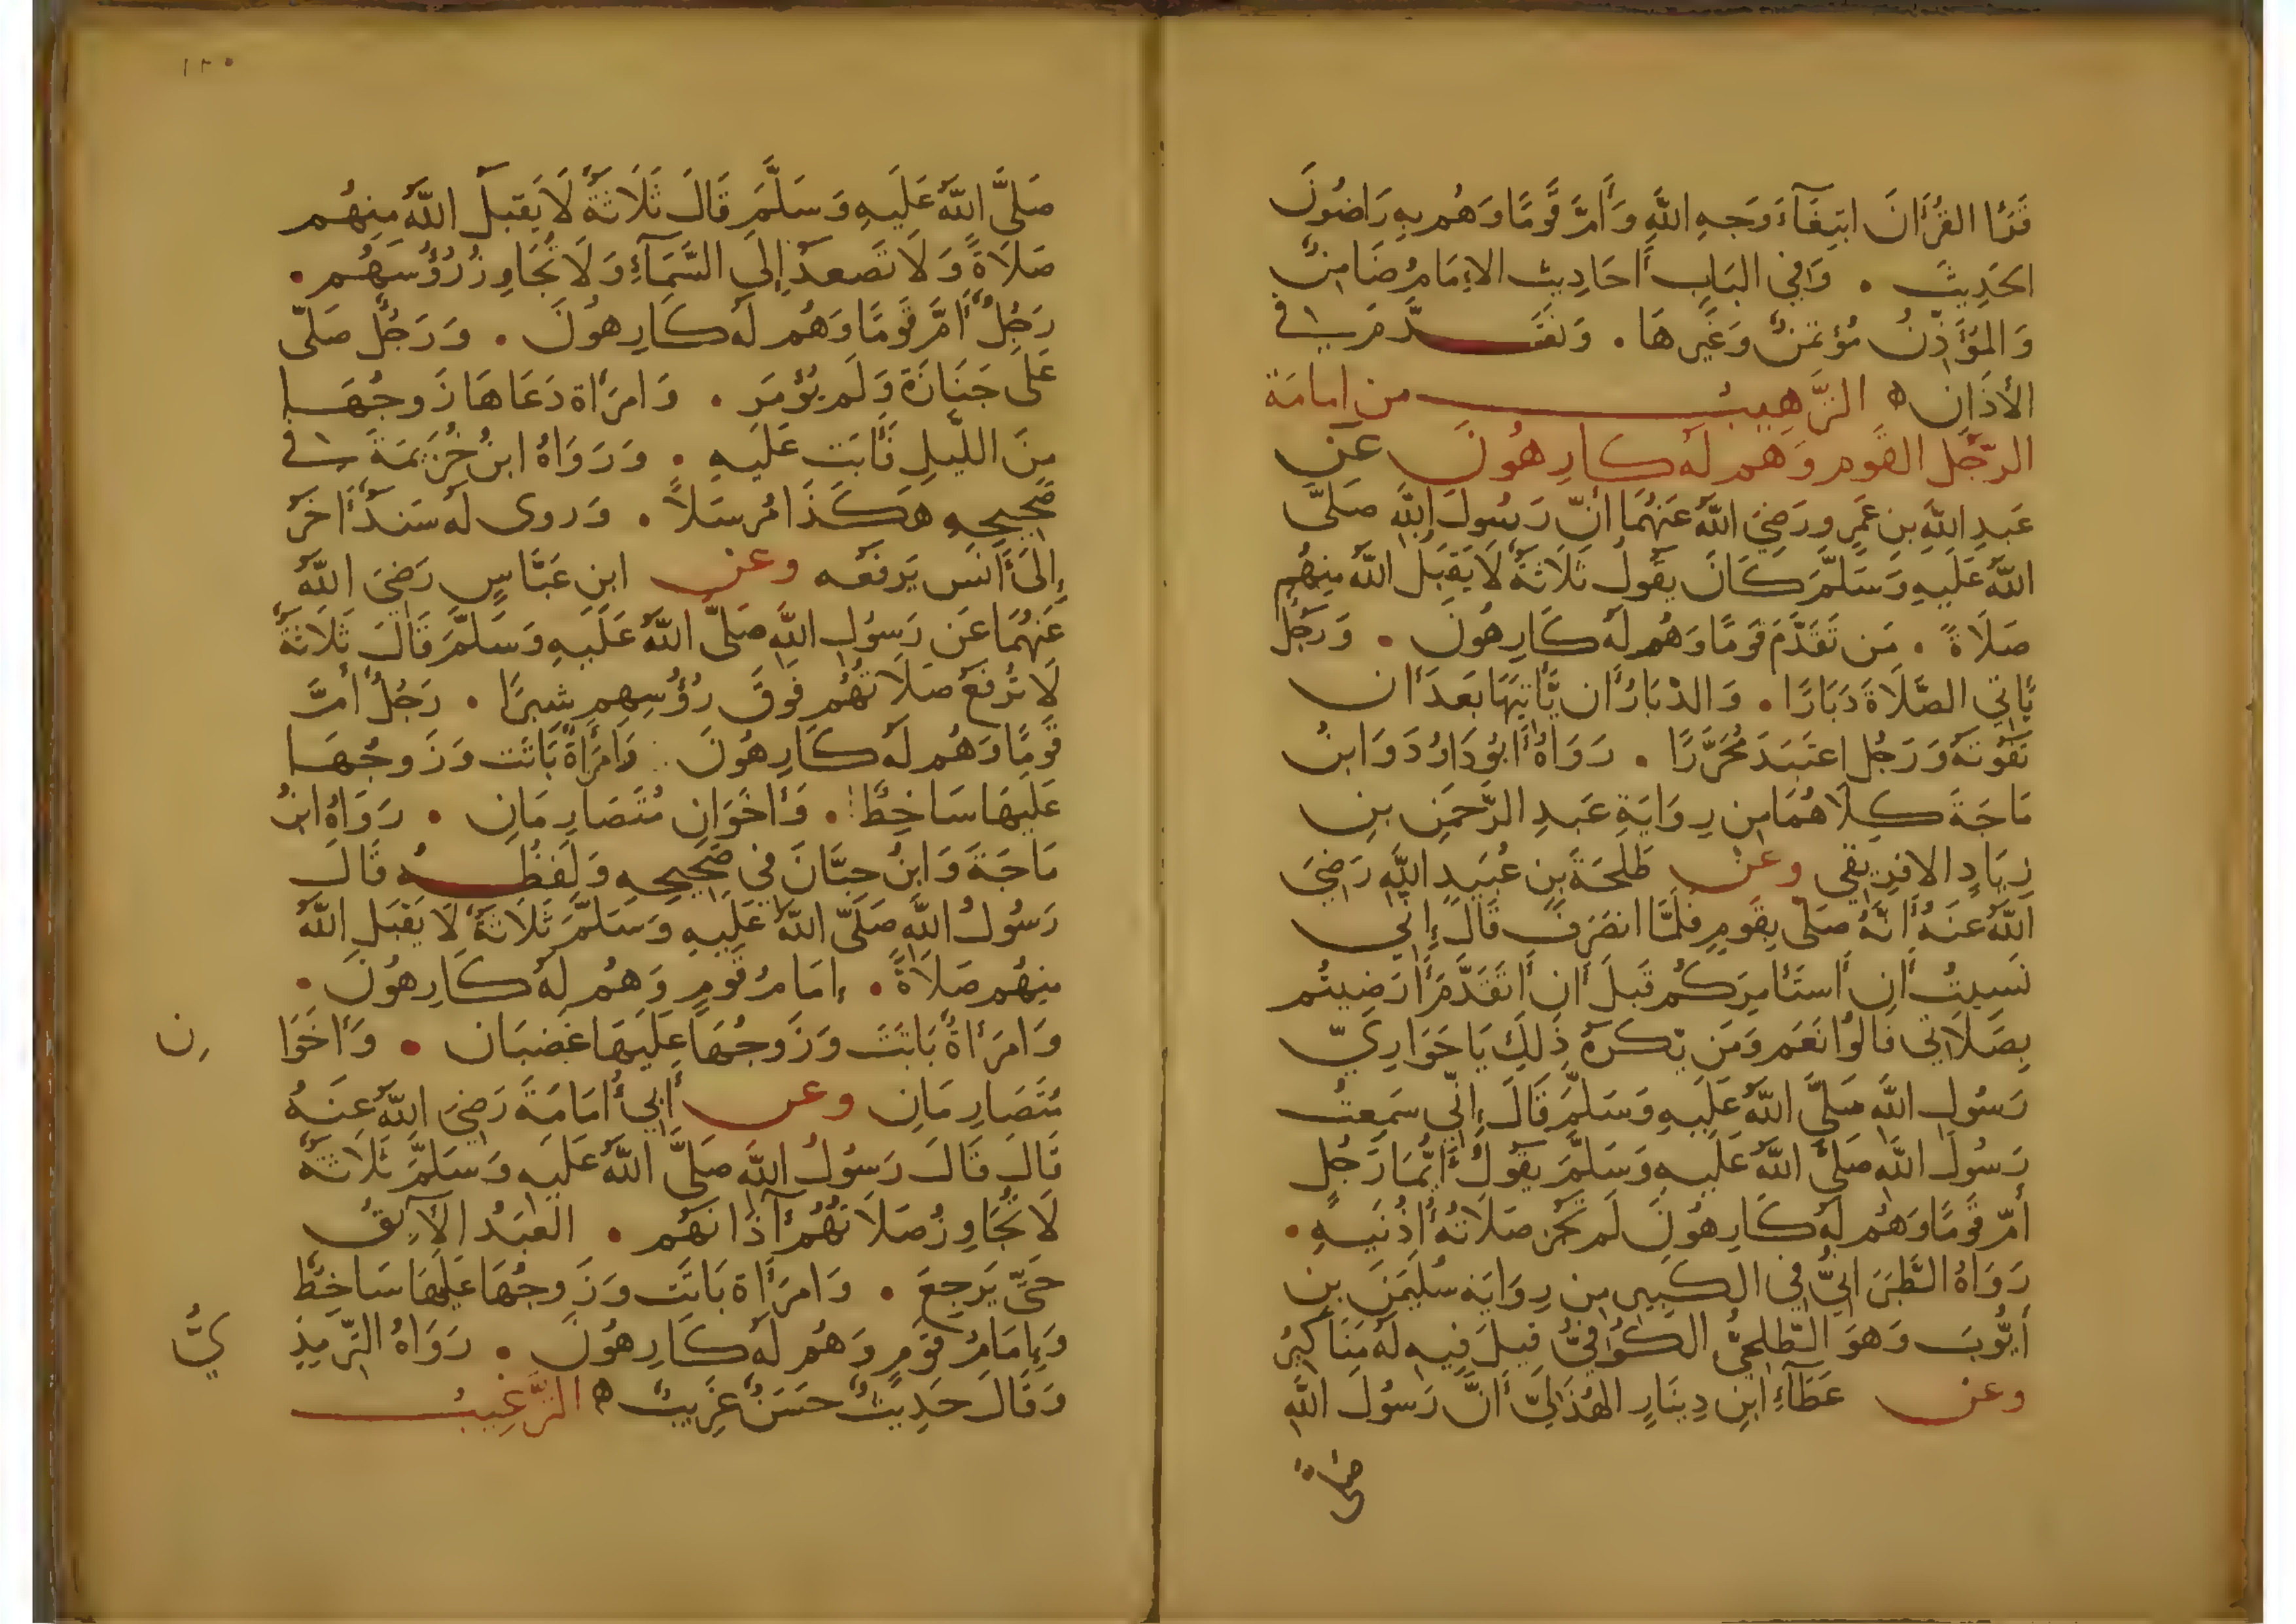 قَرَأَ القُرْآنَ ابتِغَآءَ وَجهِ اللَّهِ وَأَمَّ قَومًا وَهُم بِهِ رَاضُونَ
الحَدِيثَ . وَفِي البَابِ أَحَادِيث الإِمَامُ ضَامِنٌ
وَالمُؤَذِّنُ مُؤتَمَنٌ وَغَيرهَا . وَتَقَدَّمَت في
الأَذَانِ ه التَّرهِيبُ من إمامَة
الرَّجُل القَوم وَهم لَه كارِهُونَ عَن
عَبدِ اللَّهِ بنِ عَمرٍو رَضِيَ اللَّهُ عَنهُمَا أَنَّ رَسُولَ اللَّهِ صَلَّى
اللَّهُ عَلَيهِ وَسَلَّمَ كَانَ يَقُولُ ثَلَاثَةٌ لَا يَقبَلُ اللَّهُ مِنهُم
صَلَاةً . مَن تَقَدَّمَ قَومًا وَهُم لَهُ كَارِهُونَ . وَرَجُلٌ
يَأتِي الصَّلَاةَ دِبَارًا . وَالدِّبَارُ أَن يَّأتِيَهَا بَعدَ أَن
تَفُوتَهُ وَرَجُل اعتَبَدَ مُحَرَّرًا . رَوَاهُ أَبُو دَاوُدَ وَابنُ
مَاجَةَ كِلَاهُمَا مِن رِوَايَةِ عَبدِ الرَّحمَنِ بنِ
زِيَادٍ الافرِيقي وعَن طَلحَةَ بنِ عُبَيدِ اللَّهِ رَضِيَ
اللَّهُ عَنهُ أَنَّهُ صَلَّى بِقَومٍ فَلَمَّا انصَرَفَ قَالَ إِنِّي
نَسِيتُ أَن أَستَأمِرَكُم قَبلَ أَن أَتَقَدَّمَ أَرَضِيتُم
بِصَلَاتِي قَالُوا نَعَم وَمَن يَّكرَهُ ذَلِكَ يَا حَوَارِيَّ
رَسُولِ اللَّهِ صَلَّى اللَّهُ عَلَيهِ وَسَلَّمَ قَالَ إِنِّي سَمِعتُ
رَسُولَ اللَّهِ صَلَّى اللَّهُ عَلَيهِ وَسَلَّمَ يَقُولُ أَيُّمَا رَجُلٍ
أَمَّ قَومًا وَهُم لَهُ كَارِهُونَ لَم تَجُز صَلَاتُهُ أُذُنَيهِ .
رَوَاهُ الطَّبَرَانِيُّ فِي الكَبِيرِ مِن رِوَايَةِ سُلَيمَنَ بنِ
أَيُّوبَ وَهوَ الطَّلحِيُّ الكُوفِيُّ قِيلَ فِيهِ لَهُ مَنَاكِيرُ
وعن عَطَآءِ ابنِ دِينَارٍ الهُذَلِيِّ أَنَّ رَسُولَ اللَّهِ
صَلَّى
١٢٠
صَلَّى اللَّهُ عَلَيهِ وَسَلَّمَ قَالَ ثَلَاثَةٌ لَا يَقبَلُ اللَّهُ مِنهُم
صَلَاةً وَلَا تَصعَدُ إِلَى السَّمَآءِ وَلَا تُجَاوِزُ رُؤُسَهُم .
رَجُلٌ أَمَّ قَومًا وَهُم لَهُ كَارِهُونَ . وَرَجُلٌ صَلَّى
عَلَى جَنَازَةٍ وَلَم يُؤمَر . وَامرَأَة دَعَاهَا زَوجُهَا
مِنَ اللَّيلِ فَأَبَت عَلَيهِ . وَرَوَاهُ ابنُ خُزَيمَةَ في
صَحِيحِهِ هَكَذَا مُرسَلًا . وَروى لَهُ سَنَدًا آخَرَ
إِلَى أَنَس يَرفَعه وعن ابنِ عَبَّاسٍ رَضِيَ اللَّهُ
عَنهُمَا عَن رَسُولِ اللَّهِ صَلَّى اللَّهُ عَلَيهِ وَسَلَّمَ قَالَ ثَلَاثَةٌ
لَا تُرفَعُ صَلَاتُهُم فَوقَ رُؤُسِهِم شِبرًا . رَجُلٌ أَمَّ
قَومًا وَهُم لَهُ كَارِهُونَ . وَامرَأَةٌ بَاتَت وَزَوجُهَا
عَلَيهَا سَاخِطٌ . وَأَخَوَانِ مُتَصَارِمَانِ . رَوَاهُ ابنُ
مَاجَةَ وَابنُ حِبَّانَ فِي صَحِيحِهِ وَلَفظُهُ قَالَ
رَسُولُ اللَّهِ صَلَّى اللَّهُ عَلَيهِ وَسَلَّمَ ثَلَاثَةٌ لَا يَقبَلِ اللَّهُ
مِنهُم صَلَاةً . إِمَامُ قَومٍ وَهُم لَهُ كَارِهُونَ .
وَامرَأَةٌ بَاتَت وَزَوجُهَا عَلَيهَا غَضبَان . وَأَخَوَا
نِ
مُتَصَارِمَانِ وعن أَبِي أُمَامَةَ رَضِيَ اللَّهُ عَنهُ
قَالَ قَالَ رَسُولُ اللَّهِ صَلَّى اللَّهُ عَلَيهِ وَسَلَّمَ ثَلَاثَةٌ
لَا تُجَاوِزُ صَلَاتُهُم آذَانَهُم . العَبدُ الآبِقُ
حَتَّى يَرجِعَ . وَامرَأَة بَاتَت وَزَوجُهَا عَلَيهَا سَاخِطٌ
وَإِمَامُ قَومٍ وَهُم لَهُ كَارِهُونَ . رَوَاهُ التِّرمِذِ
يُّ
وَقَالَ حَدِيثٌ حَسَنٌ غَرِيبٌ ه التَّرغِيبُ